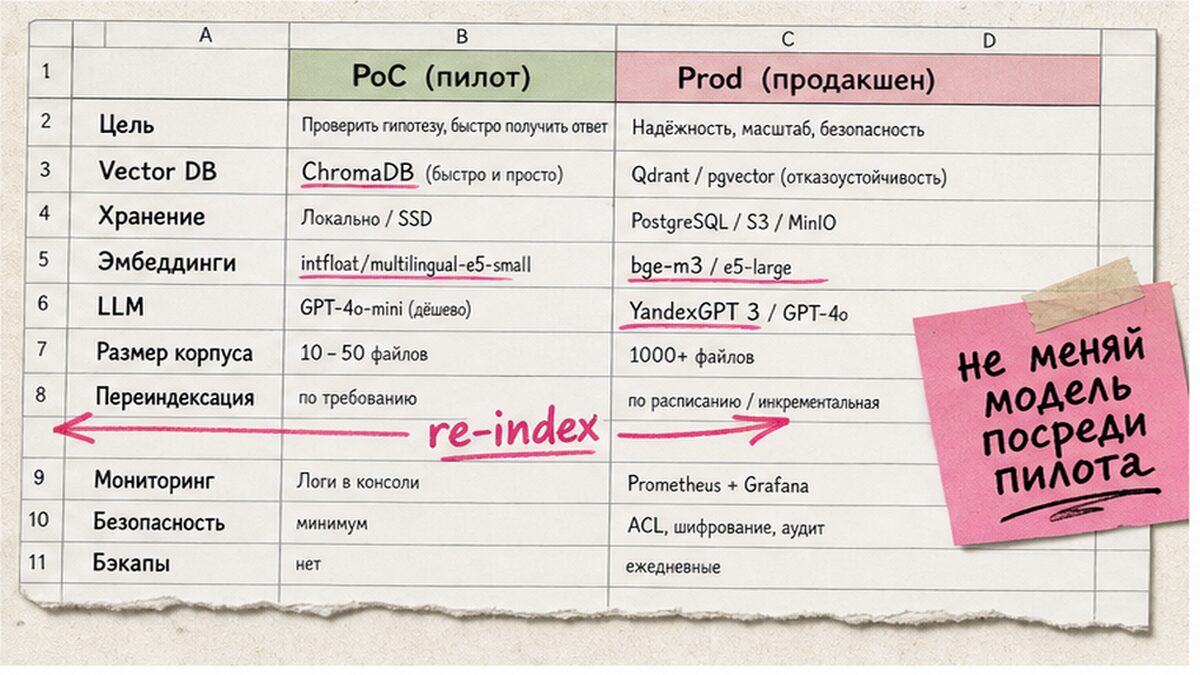 A B C D
1 PoC (пилот) Prod (продакшен)
2 Цель Проверить гипотезу, быстро получить ответ Надёжность, масштаб, безопасность
3 Vector DB ChromaDB (быстро и просто) Qdrant / pgvector (отказоустойчивость)
4 Хранение Локально / SSD PostgreSQL / S3 / MinIO
5 Эмбеддинги intfloat/multilingual-e5-small bge-m3 / e5-large
6 LLM GPT-4o-mini (дёшево) YandexGPT 3 / GPT-4o
7 Размер корпуса 10 – 50 файлов 1000+ файлов
8 Переиндексация по требованию по расписанию / инкрементальная
re-index
9 Мониторинг Логи в консоли Prometheus + Grafana
10 Безопасность минимум ACL, шифрование, аудит
11 Бэкапы нет ежедневные
не меняй
модель
посреди
пилота